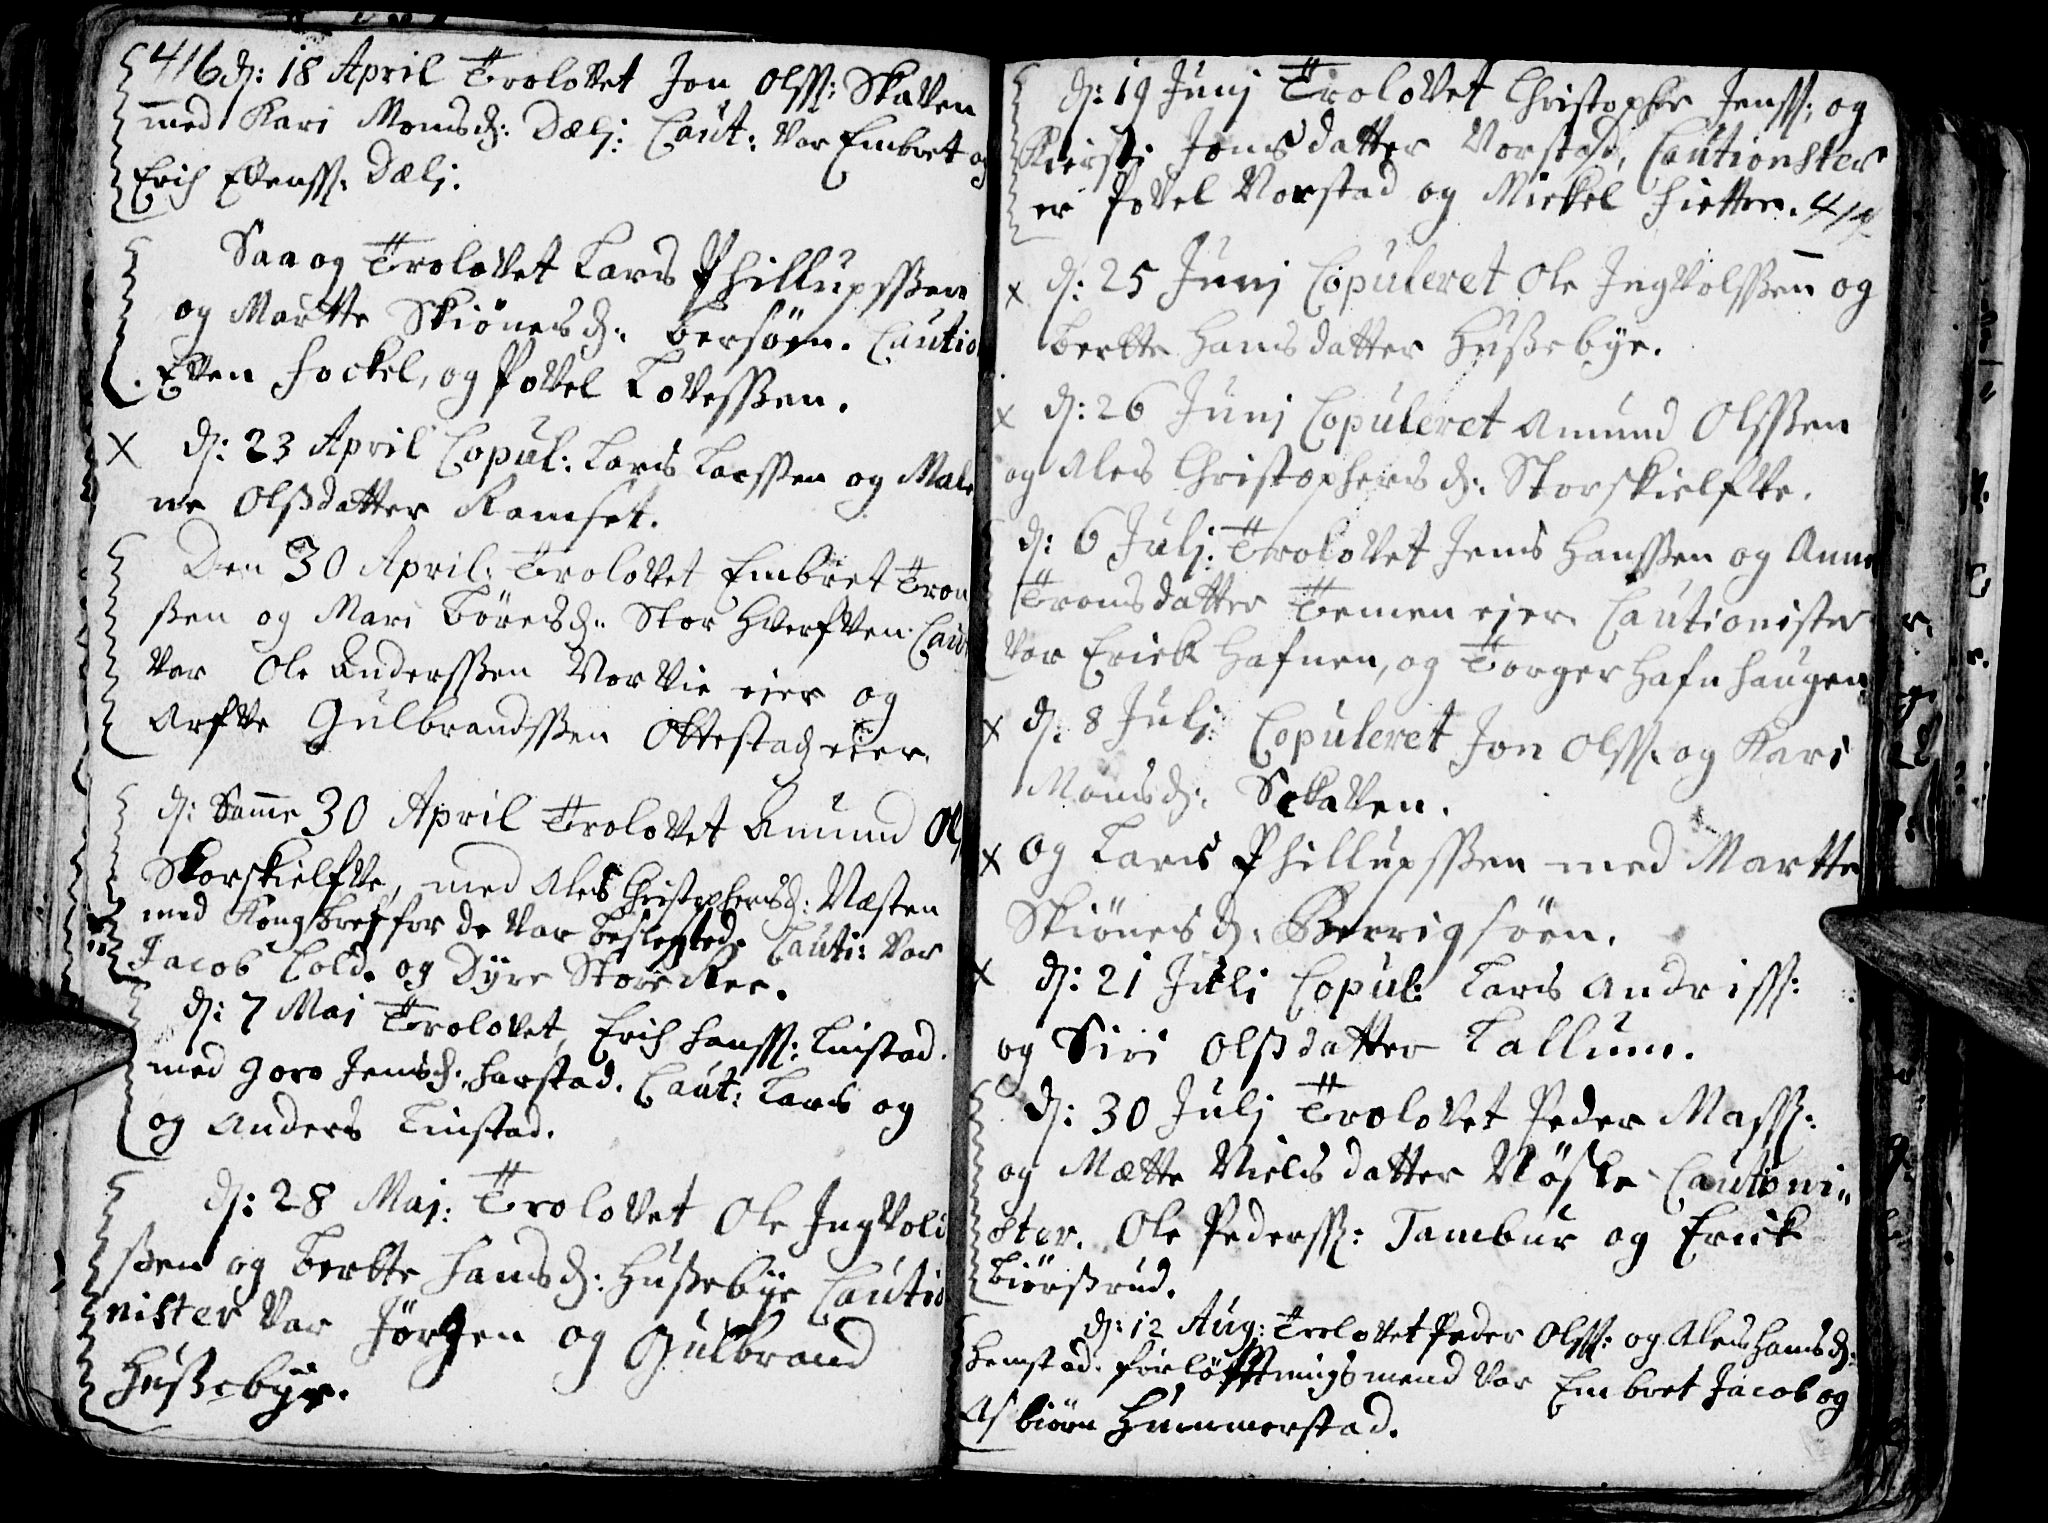 416 d: 18 April Trolovet Jon Olss: Skaven
med Kari Monsd: Dælj: Caut: var Embret og
Erich Evenss: Dælj.
Saa og Trolovet Lars Phillupssen
og Martte Skiönesd: Bersöen. Cautio
Even Fockel, og Povel Lovessen.
d: 23 April Copul: Lars Larssen og Male
ne Olsdatter Ramset.
Den 30 April: Trolovet Embret Tron
ssen og Mari Börresd: Stor Hverfven Caut
var Ole Anderssen Vorvie eier og
Arfve Gulbrandssen Ottestad eier.
d: Samme 30 April Trolovet Amund Ols
Storskielfve, med Ales Christophersd: Næsten
med Kongsbref for de var beslegted. Cauti: var
Jacob Cold. og Dyre Store Ree.
d: 7 Maj Trolovet, Erich Hanss: Linstad.
med Goro Jensd. Harstad. Caut: Lars og
og Anders Linstad.
d: 28 Maj: Trolovet Ole Ingvold
ssen og Bertte Hansd: Hussebye Cautio
nister var Jörgen og Gulbrand
Hussebye.
d: 19 Junj Trolovet Christopher Jenss: og
Kiersti Jonsdatter Vorstad, Cautionster
er Povel Vorstad og Mickel Hietten. 417
d: 25 Junj Copuleret Ole Ingvolssen og
Bertte Hansdatter Hussebye.
d: 26 Junj Copuleret Amund Olssen
og Ales Christophersd: Storskielfve.
d: 6 Julj: Trolovet Jens Hanssen og Anne
Tronsdatter Temen eier Cautionister
var Erick Hafnen, og Torger Hafnhaugen
d: 8 Julj: Copuleret Jon Olss: og Kari
Monsd: Sckaven.
og Lars Phillupssen med Martte
Skiönesd: Berrigsöen.
d: 21 Juli Copul: Lars Andriss:
og Siri Olsdatter Lallum.
d: 30 Julj Trolovet Peder Mass:
og Mætte Nielsdatter Nøsle Cautioni-
ster. Ole Pederss: Tambur og Erick
Biørssrud.
d: 12 Aug: Trolovet Peder Olss: og Ales Hansd:
Hemstad. Forløfftningsmend var Embret Jacob og
Asbiörn Hummerstad.